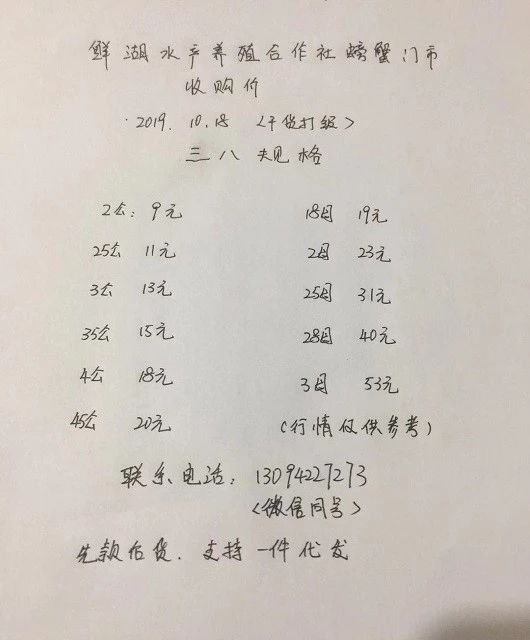 鲜湖水产养殖合作社螃蟹门市
收购价
·2019.10.18 <干货打级>
三八规格
2公: 9元 18母 19元
25公 11元 2母 23元
3公 13元 25母 31元
35公 15元 28母 40元
4公 18元 3母 53元
45公 20元 (行情仅供参考)
联系电话: 13094227273
<微信同号>
先款后货. 支持一件代发